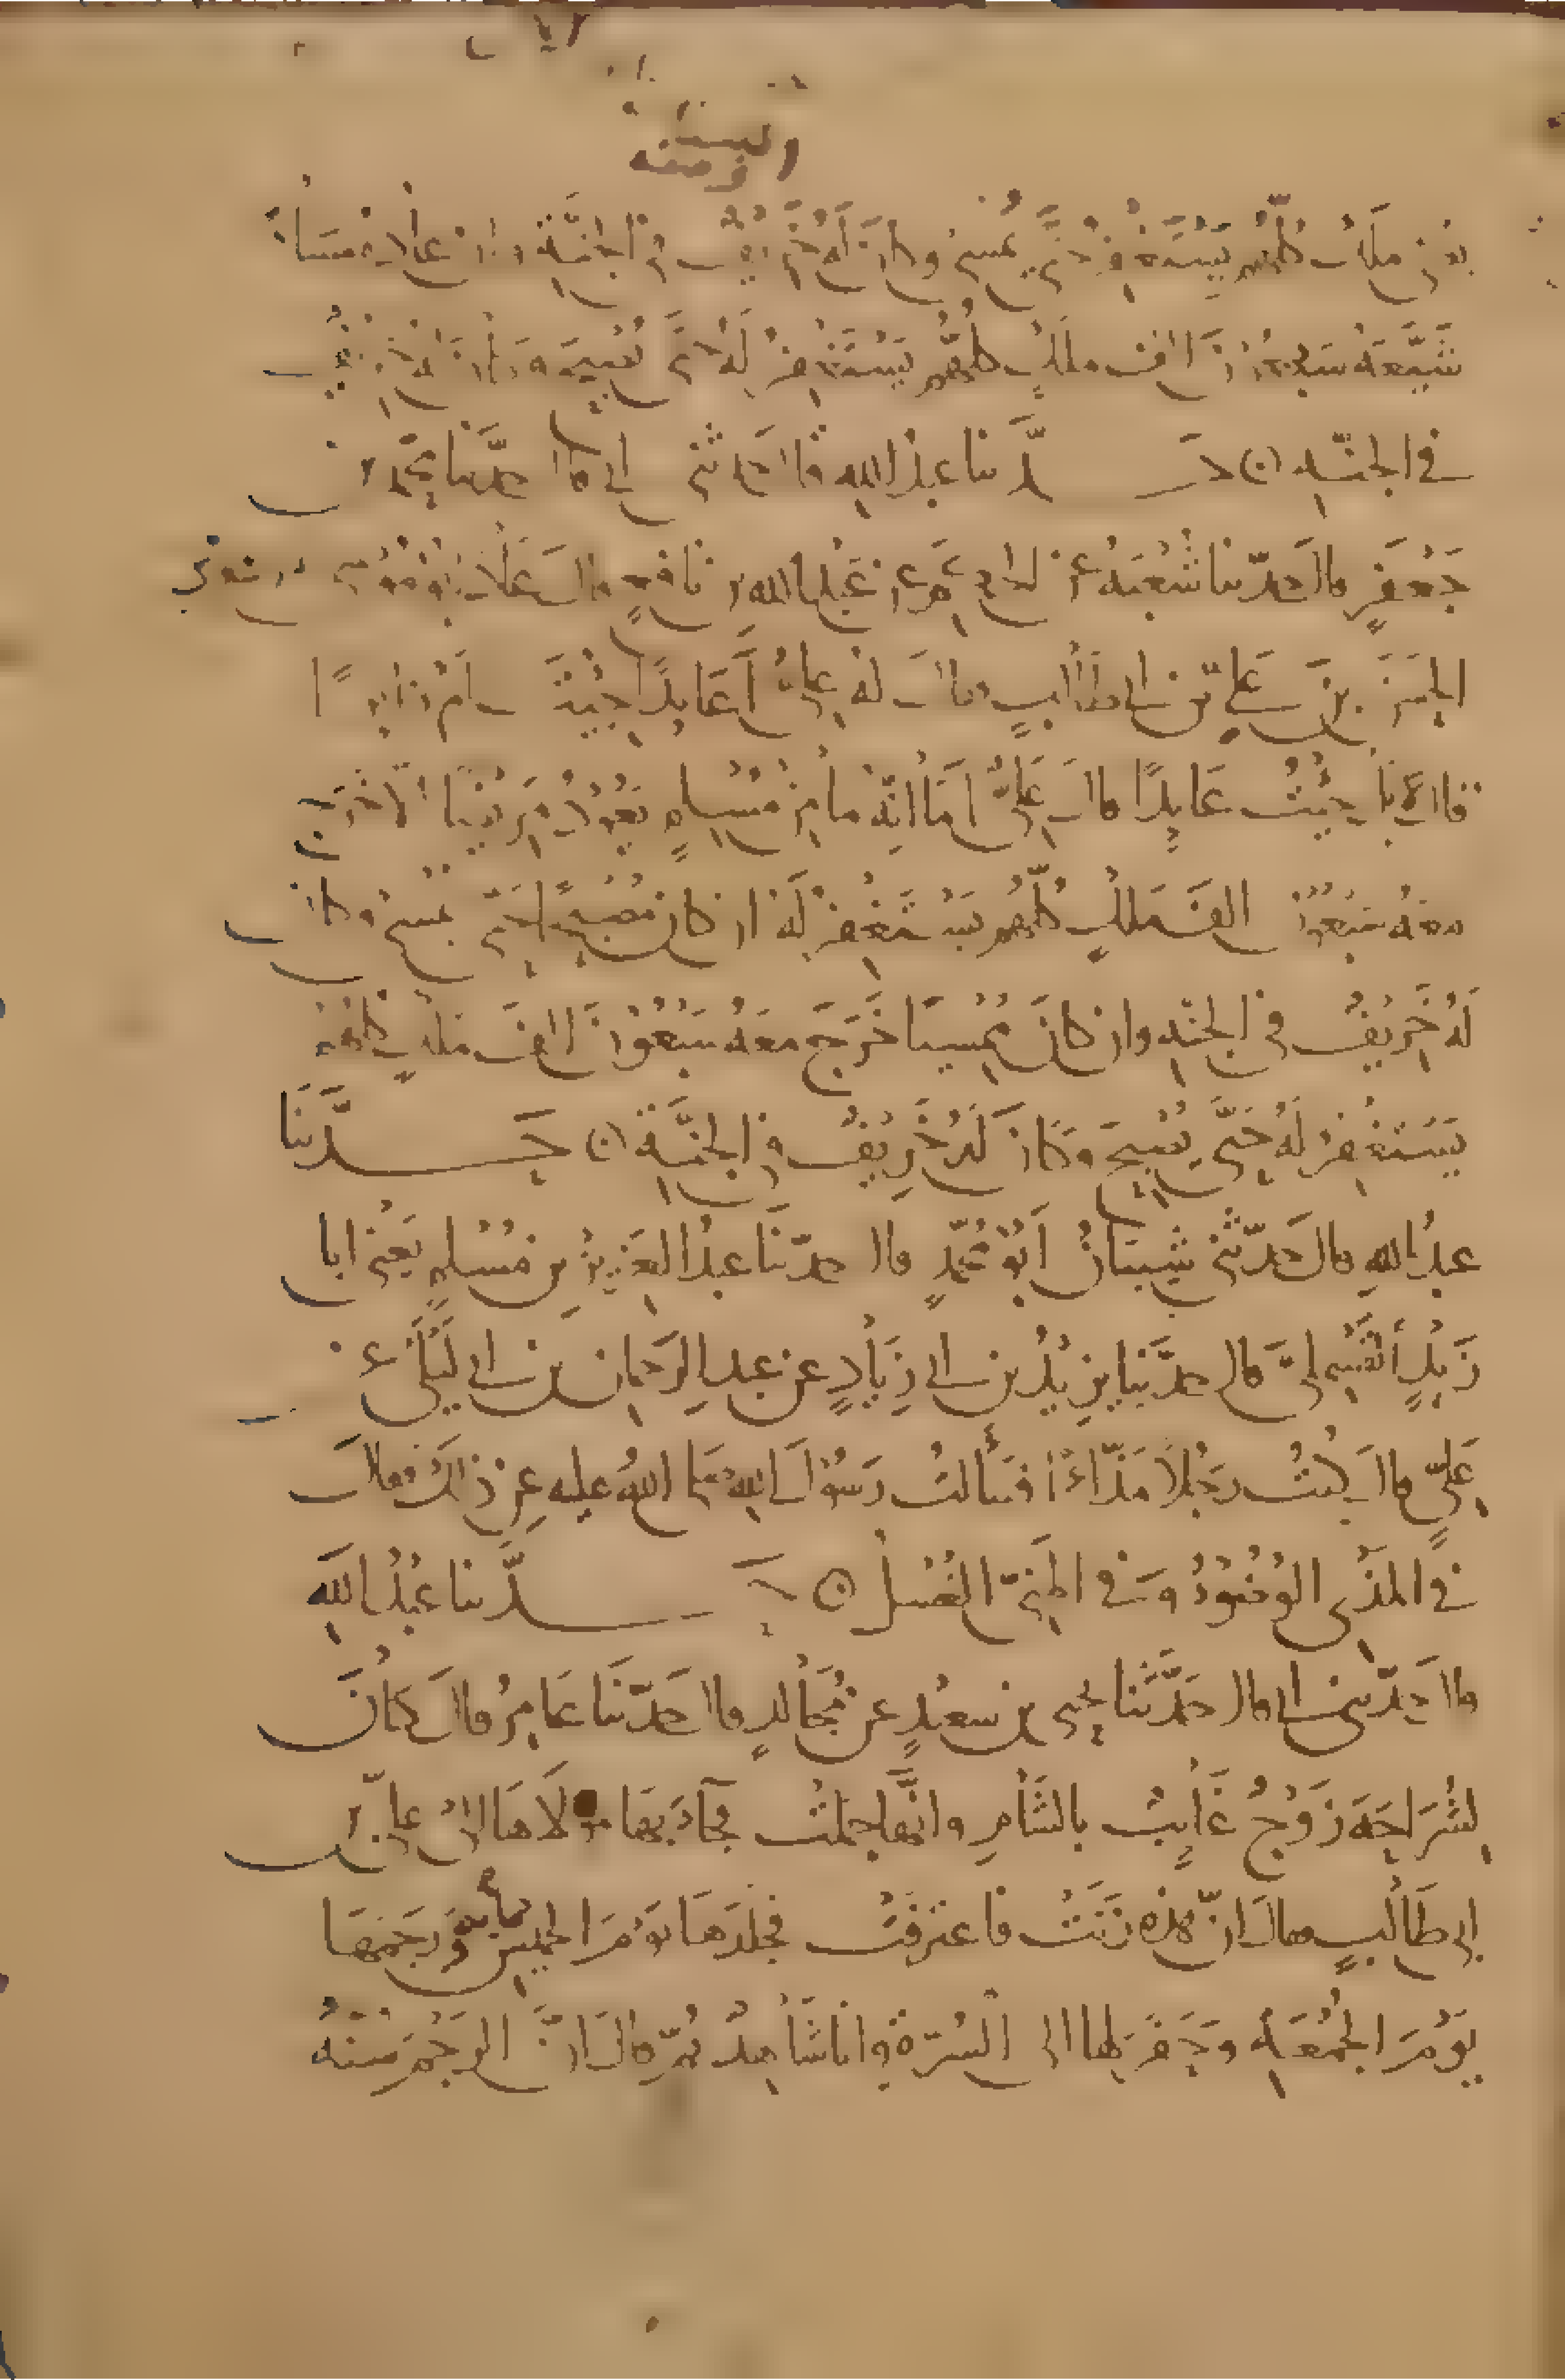 ملك كلهم يستغفر له حتى يمسي وكان له خريف في الجنة وان عاده مساء
شيعه سبعون الف ملك كلهم يستغفر له حتى يصبح وكان له خريف
في الجنه حدثنا عبد الله قال حدثني ابي قال حدثنا محمد بن
جَعفَرٍ قال حدّثنا شُعْبَه عن الحكم عن عَبْدِ الله بن نافعٍ قال عَادَ ابُو مُوسى
الحَسَنَ بنَ عَليّ بن ابى طَالبٍ فقال له عليٌّ أَعَايِدًا جِئْتَ ام زايرًا
فقال لا بل جِئتُ عَايِدًا قال عَليٌّ اَمَا انّه ما مِن مُسْلِمٍ يَعُودُ مَرِيْضًا الّا خَرَجَ
معَهُ سَبْعُونَ الفَ مَلَكٍ كُلّهُم يَسْتَغْفِرُ لَهُ ان كان مُصْبِحًا حَتّى يُمْسِيَ وكان
لَهُ خَرِيْفٌ في الجنّهِ وان كانَ مُمْسِيًا خَرَجَ مَعَهُ سَبْعُوْنَ الفَ مَلَكٍ كلهُم
يَسْتَغفِرُ لَهُ حَتَّى يُصْبِحَ وَكَانَ لَهُ خَرِيْفٌ في الجنَّةِ حَـــدَّثَنَا
عبدُ اللهِ قال حَدّثني شَيْبَانُ اَبُوْ مُحمّدٍ قال حدّثنَا عبدُ العَزِيْزِ بن مُسْلمٍ يَعْنى ابا
زَيْدٍ القَسْمِلىَّ قال حدَّثنا يزِيْدُ بن ابى زِيَادٍ عن عبدِ الرَحمانِ بن ابى لَيْلَى عن
عَلىٍّ قالَ كُنْتُ رَجُلاً مَذّاءً فسَألتُ رَسُوْلَ اللهِ صَلى اللهُ عليه عن ذلكَ فقالَ
في المذْى الوُضُوْءُ وَفى المَنِيّ الغُسْلُ حَـــدّثنا عَبْدُ اللهِ
قال حَدّثنى ابى قال حَدَّثَنا يحيى بن سعيْدٍ عن مُجَالدٍ قال حَدّثنَا عَامِرٌ قالَ كَانَ
لِشُرَاحَةَ زَوْجٌ غَايِبٌ بالشَامِ وانَّها حملَتْ فجَاءَ بهَا مَوْلَاهَا الىَ عليّ بن
ابى طَالبٍ فقالَ انّ هذه زَنَتْ فاعترفَتْ فجلَدَهَا يَوْمَ الخميس مايه وَرَجَمَهَا
يَوْمَ الجُمعَةِ وَحَفَرَ لها الى السُرّة وانا شَاهِدٌ ثمّ قالَ انَّ الرَجْمَ سُنّهٌ